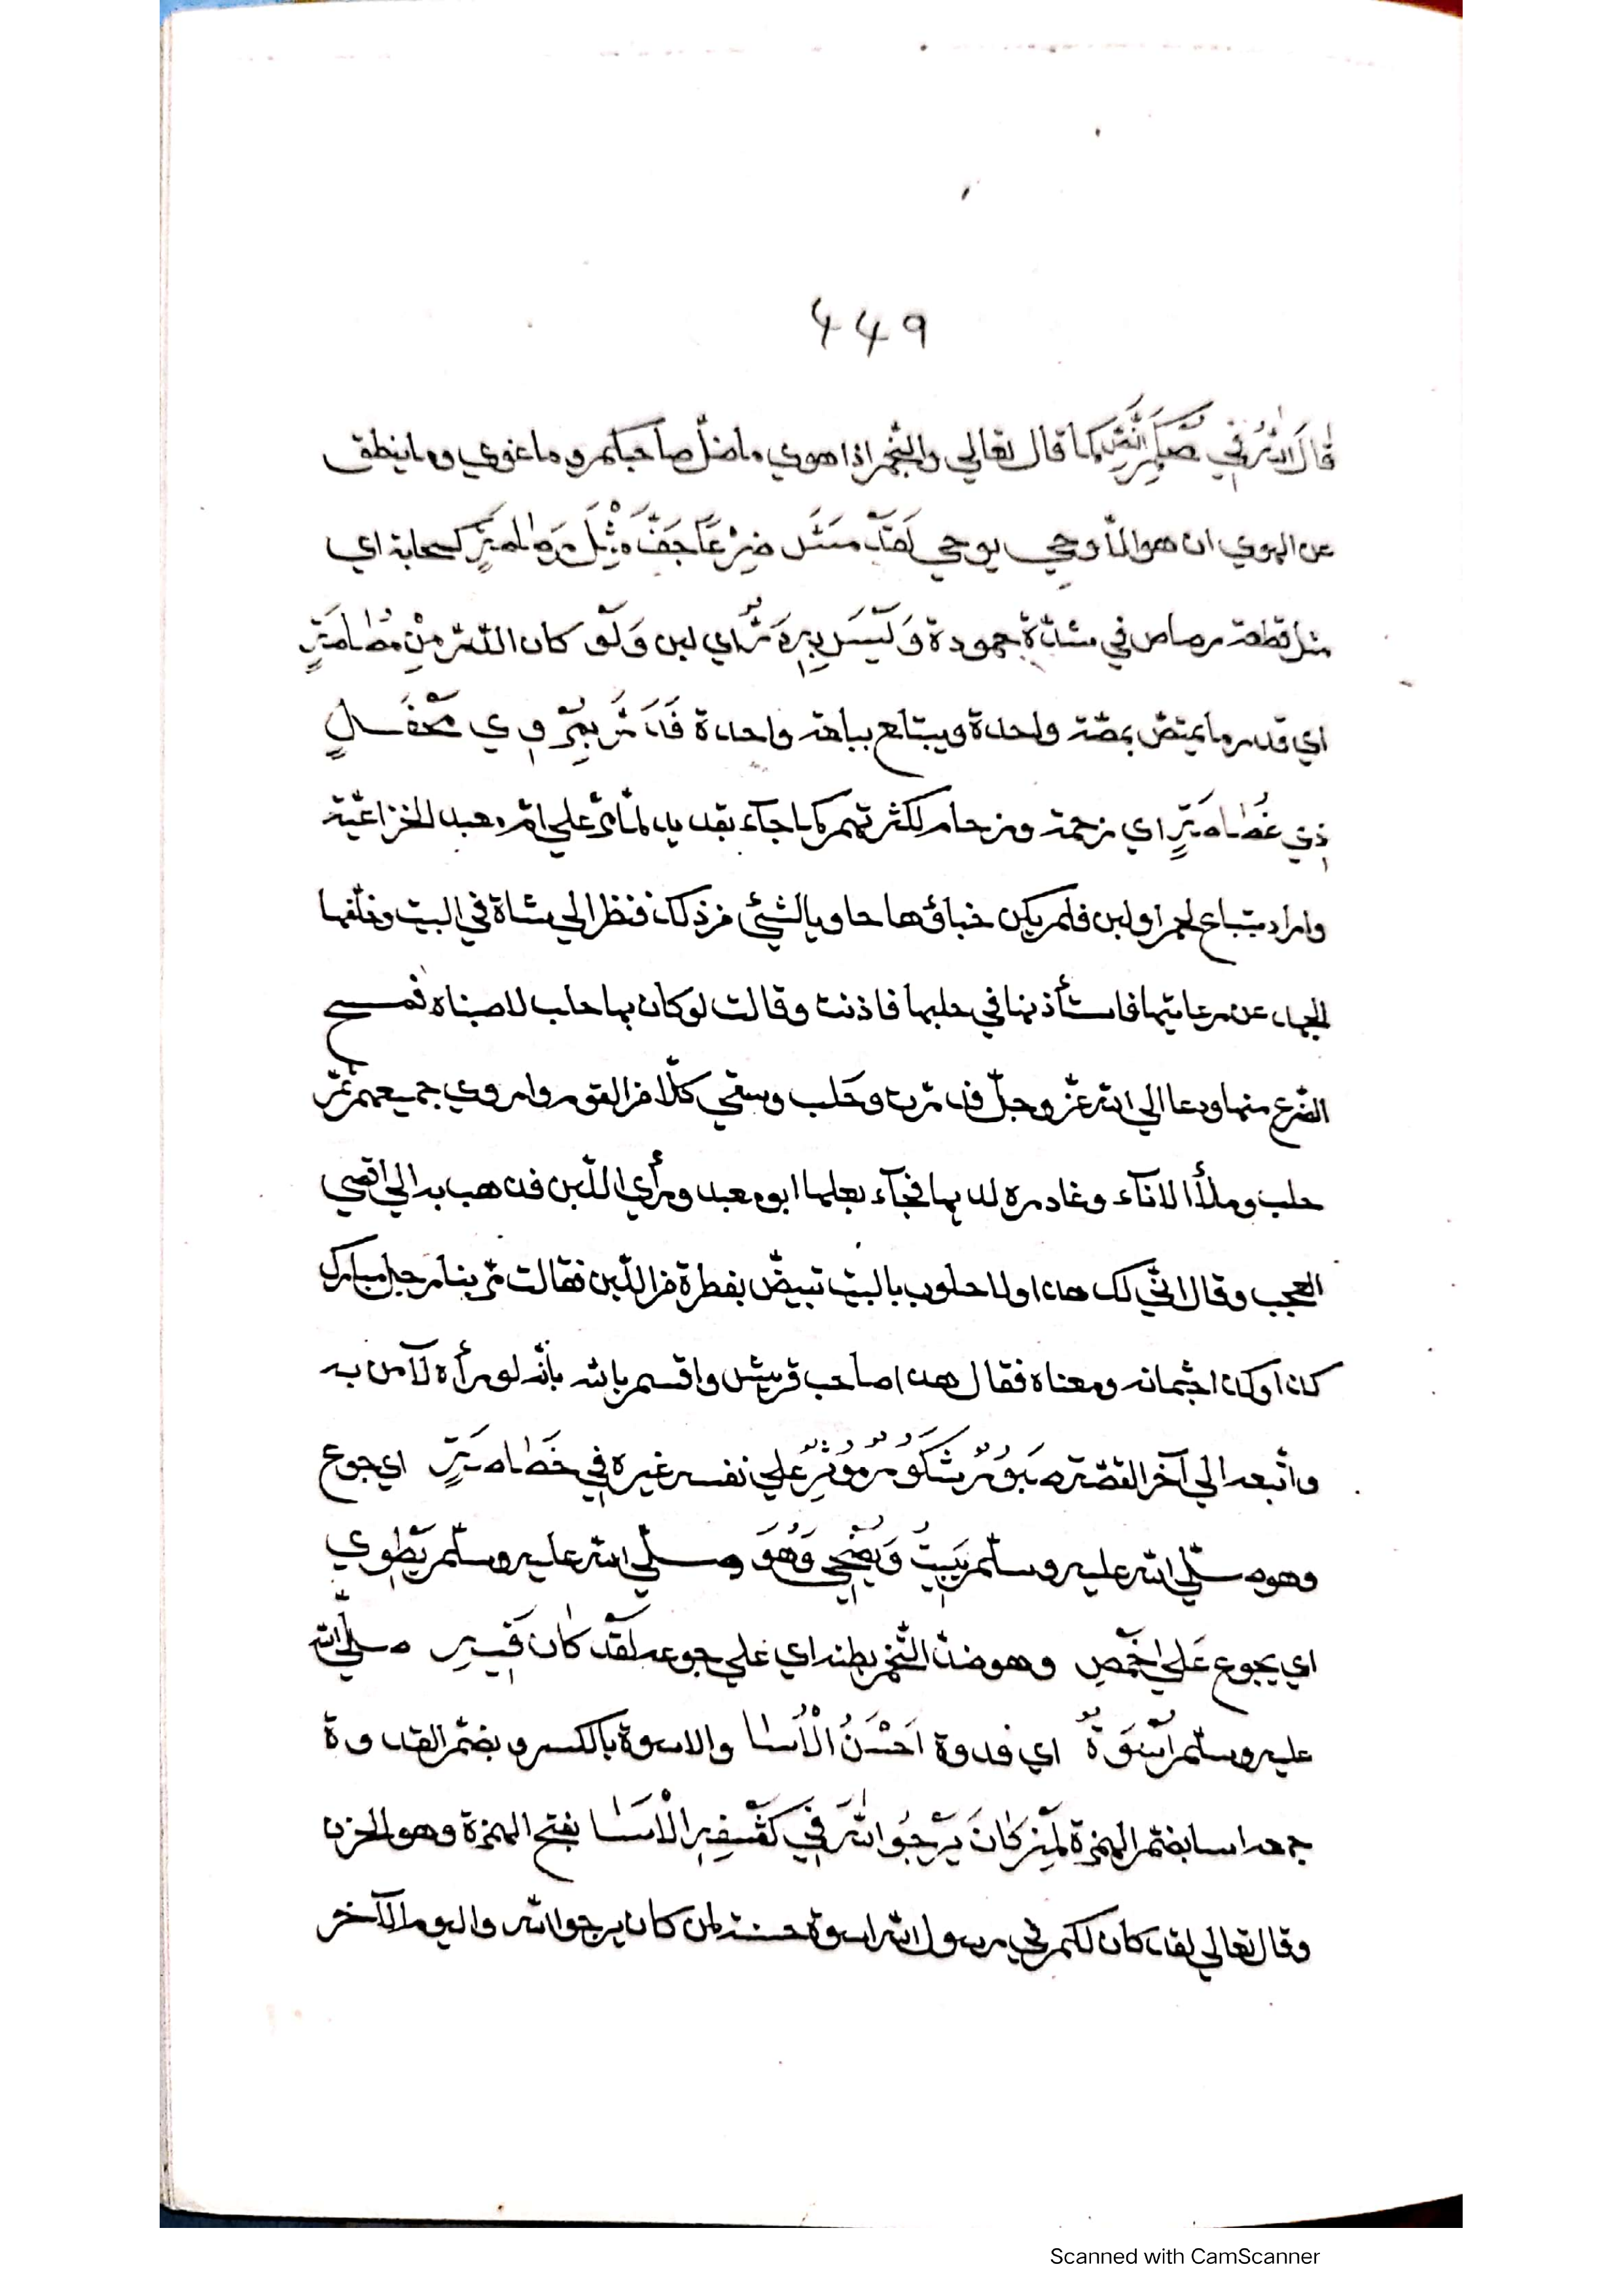 ٤٤٩
قَالَ اللهُ فِي صُحُكِمِ النَّصِّ كما قال تعالي والنّجم اذا هوي ما ضلّ صاحبكم وما غوي وما ينطق
عن الهوي ان هو الّا وحي يوحي لَقَدْ مَسَّ ضِرْعًا جَفَّ مِثْلَ كسحابة اي
مثل قطعة رصاص في شدّة جمودة وَلَيْسَ بِهِ دَرٌّ اي لبن وَلَوْ كان الدّر مِنْ
اي قدر ما يمتصّ بمصّة واحدة ويبتلع ببلعة واحدة فَدَرَّ بِمَرْوِي مَحْفَلٍ
ذِي اي زحمة وزحام لكثرتهم كما جاء بقديد لمّا مرّ علي امّ معبد الخزاعيّة
واراد يبتاع لحم او لبن فلم يكن خباؤها حاويا لشيئ من ذلك فنظر الي شاة في البيت وخلّفها
الجهد عن رعايتها فاستأذنها في حلبها فاذنت وقالت لو كان بها حلب لاصبناه فمسح
الضرع منها ودعا الي الله عزّ وجلّ فدرّت وحَلب وسقي كلّا من القوم واروي جميعهم ثمّ
حلب وملأ الاناء وغادره لديها فجاء بعلها ابو معبد ورأي اللّبن فذهب به الي اقصي
العجب وقال انّي لك هذا ولا حلوب بالبيت تبيضّ بقطرة من اللّبن فقالت مرّ بنا رجل مبارك
كذا وكذا جثمانه ومعناه فقال هذا صاحب قريش واقسم بالله بأنّه لو رأه لآمن به
واتّبعه الي آخر القصّة صَبُورٌ شَكُورٌ مُؤْثِرٌ علي نفسه غيره فِي اي جوع
وهو صلّي الله عليه وسلّم يَبِيتُ وَيُضْحِي وَهُوَ صلّي الله عليه وسلّم يَطْوِي
اي يجوع عَلي اَخْمَصِ وهو ضدّ الشّخم بطنه اي علي جوعه لَقَدْ كَانَ فِيهِ صلّي الله
عليه وسلّم اُسْوَةٌ اي قدوة اَحْسَنُ الْاُسَا والاسوة بالكسر وبضمّ القدوة
جمعه اسا بضمّ الهمزة لِمَنْ كَانَ يَرْجُو اللهَ فِي كَشْفِهِ الْاَسَا بفتح الهمزة وهو الحزن
وقال تعالي لقد كان لكم في رسول الله اسوة حسنة لمن كان يرجو الله واليوم الآخر
Scanned with CamScanner